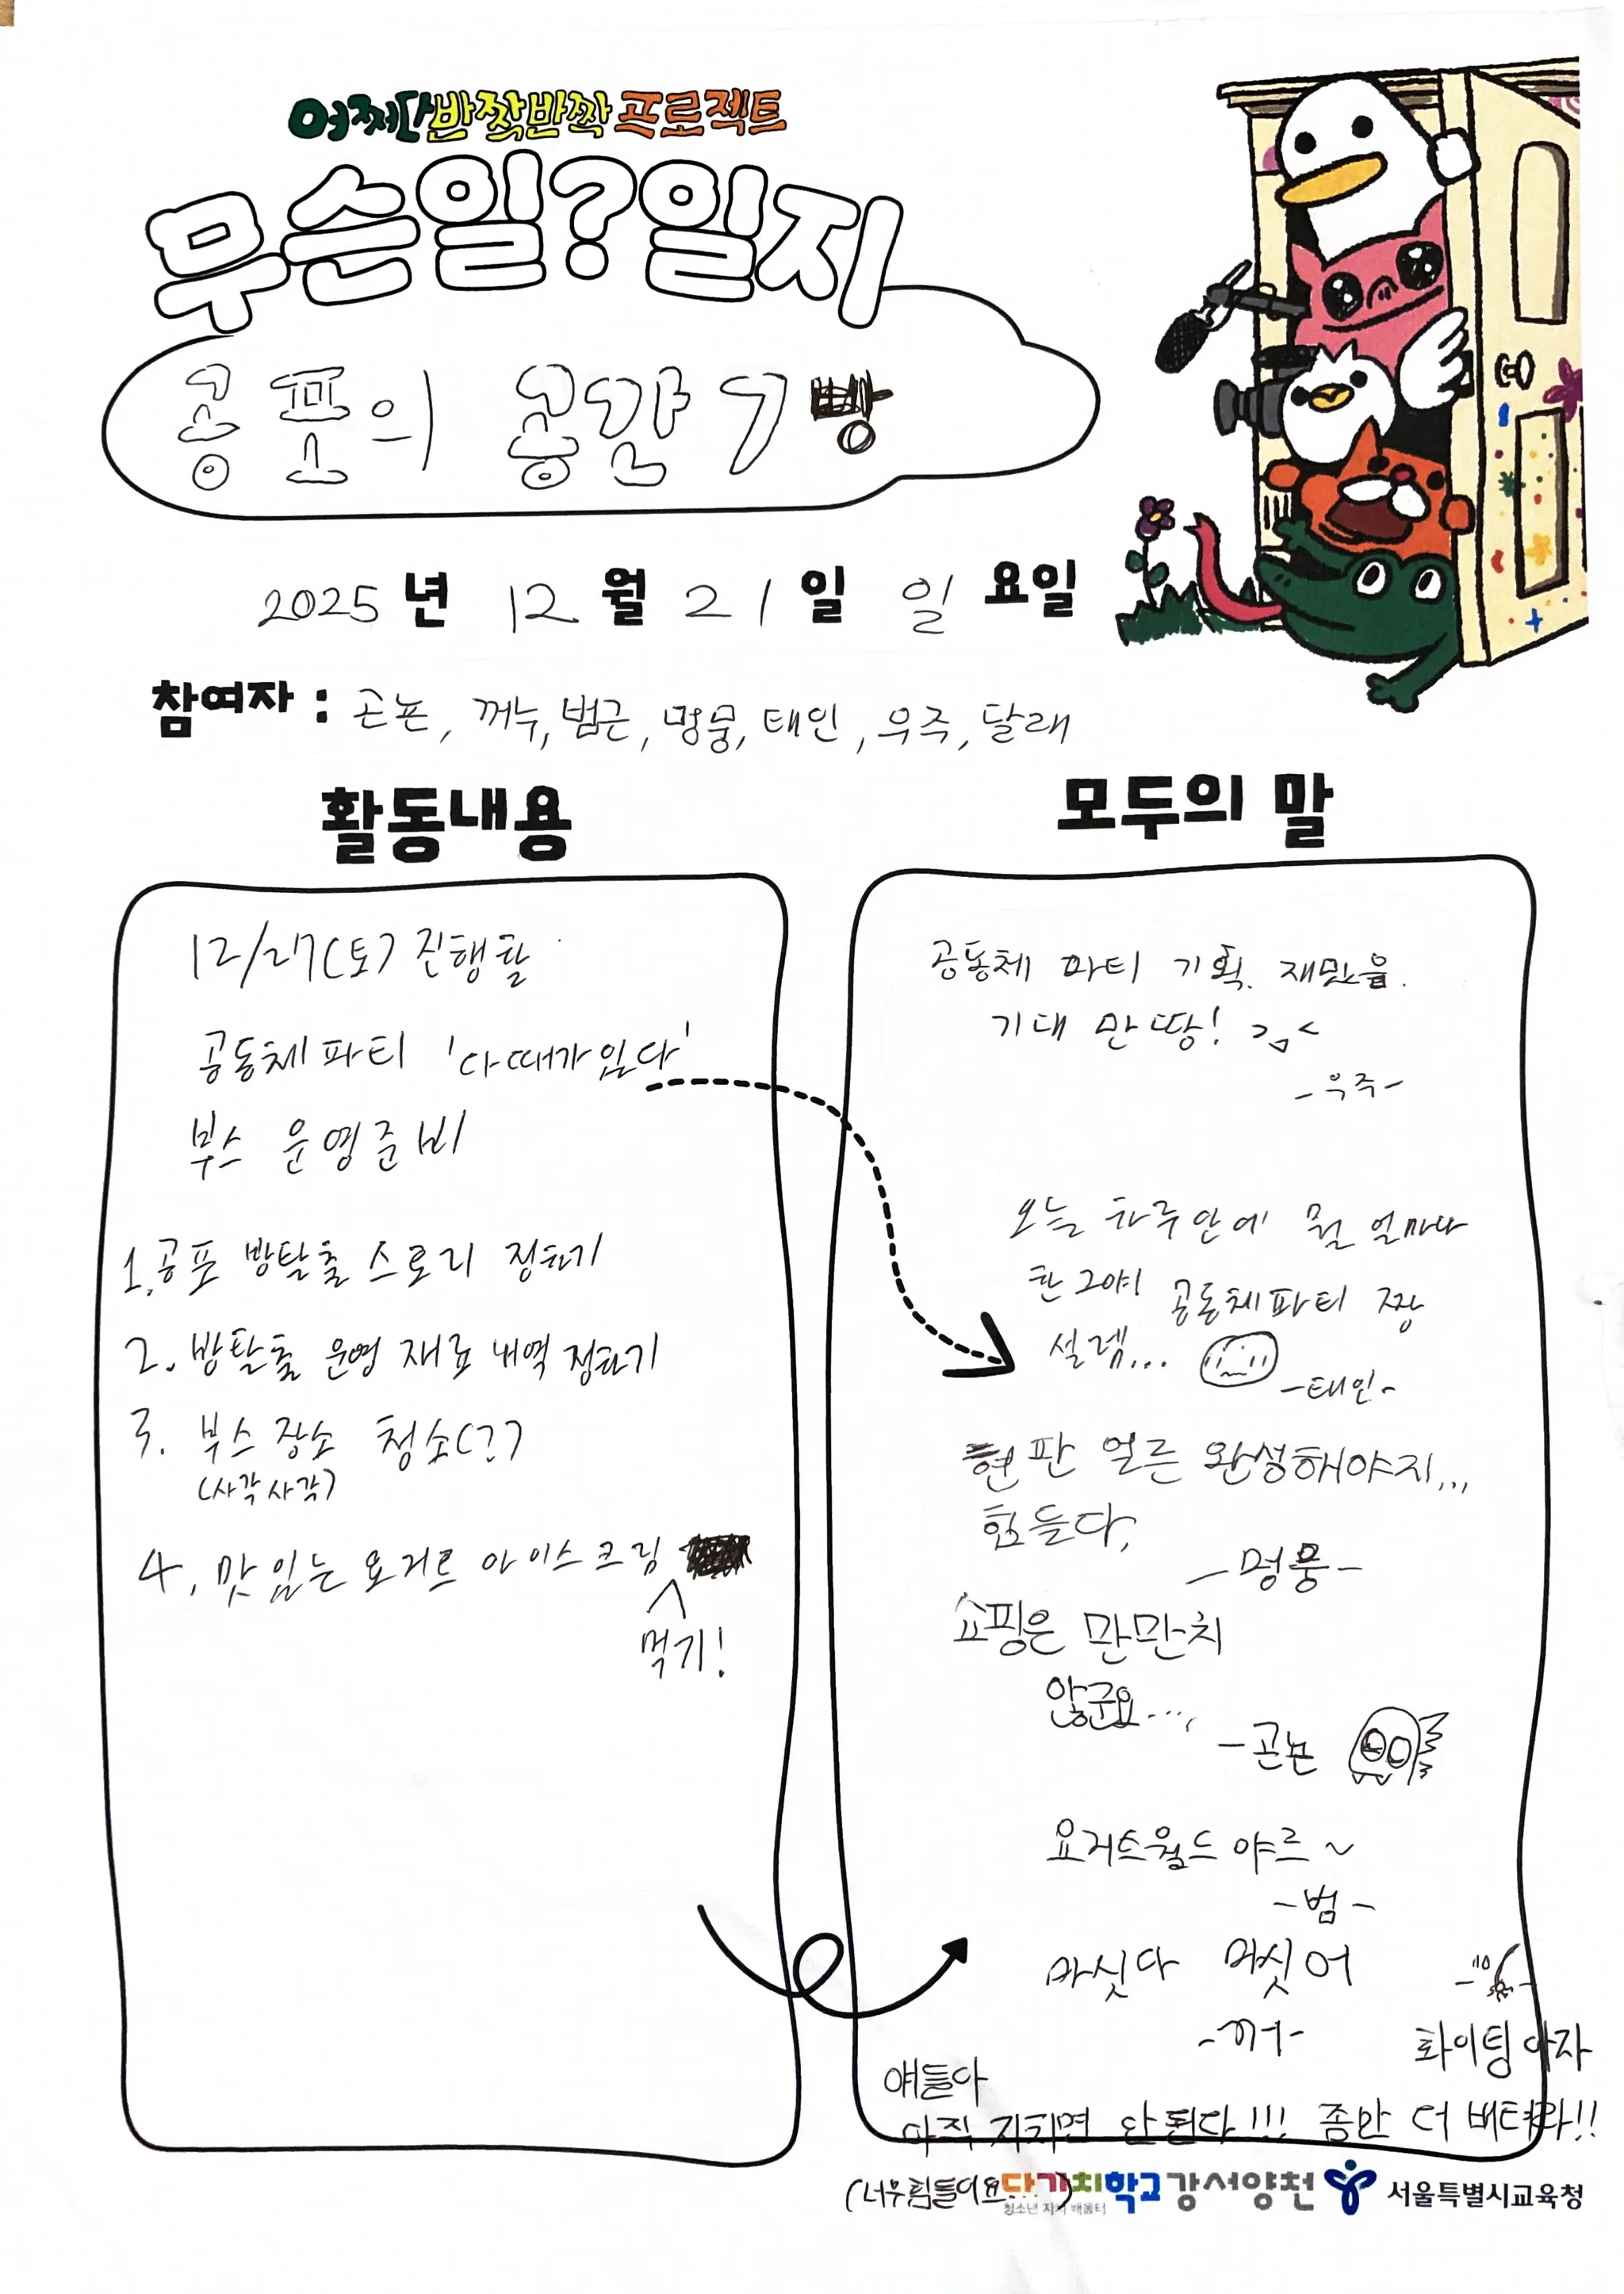 어쩌다반짝반짝프로젝트
무슨일?일지
공포의 공간 7빵
2025년 12월 21일 일요일
참여자 : 곤뇬, 꺼누, 범근, 멍뭉, 태인, 우주, 달래
활동내용
12/27(토) 진행할
공동체 파티 '다때가있다'
부스 운영준비
1. 공포 방탈출 스토리 정하기
2. 방탈출 운영 재료 내역 정하기
3. 부스 장소 청소(??)
(사각사각)
4. 맛있는 요거트 아이스크림
먹기!
모두의 말
공동체 파티 기획. 재밌음.
기대 만땅! >_<
-우주-
오늘 하루안에 뭘 얼마나
한 그야 공동체파티 짱
설렘...
-태인-
현판 얼른 완성해야지...
힘들다,
-멍뭉-
쇼핑은 만만치
않군요....
-곤뇬
요거트월드 야르~
-범-
마싯다 머싯어
-꺼-
화이팅 아자
얘들아
아직 지치면 안된다!!! 좀만 더 버텨라!!
(너무힘들어요...)
다가치학교 강서양천
청소년 자치 배움터
서울특별시교육청